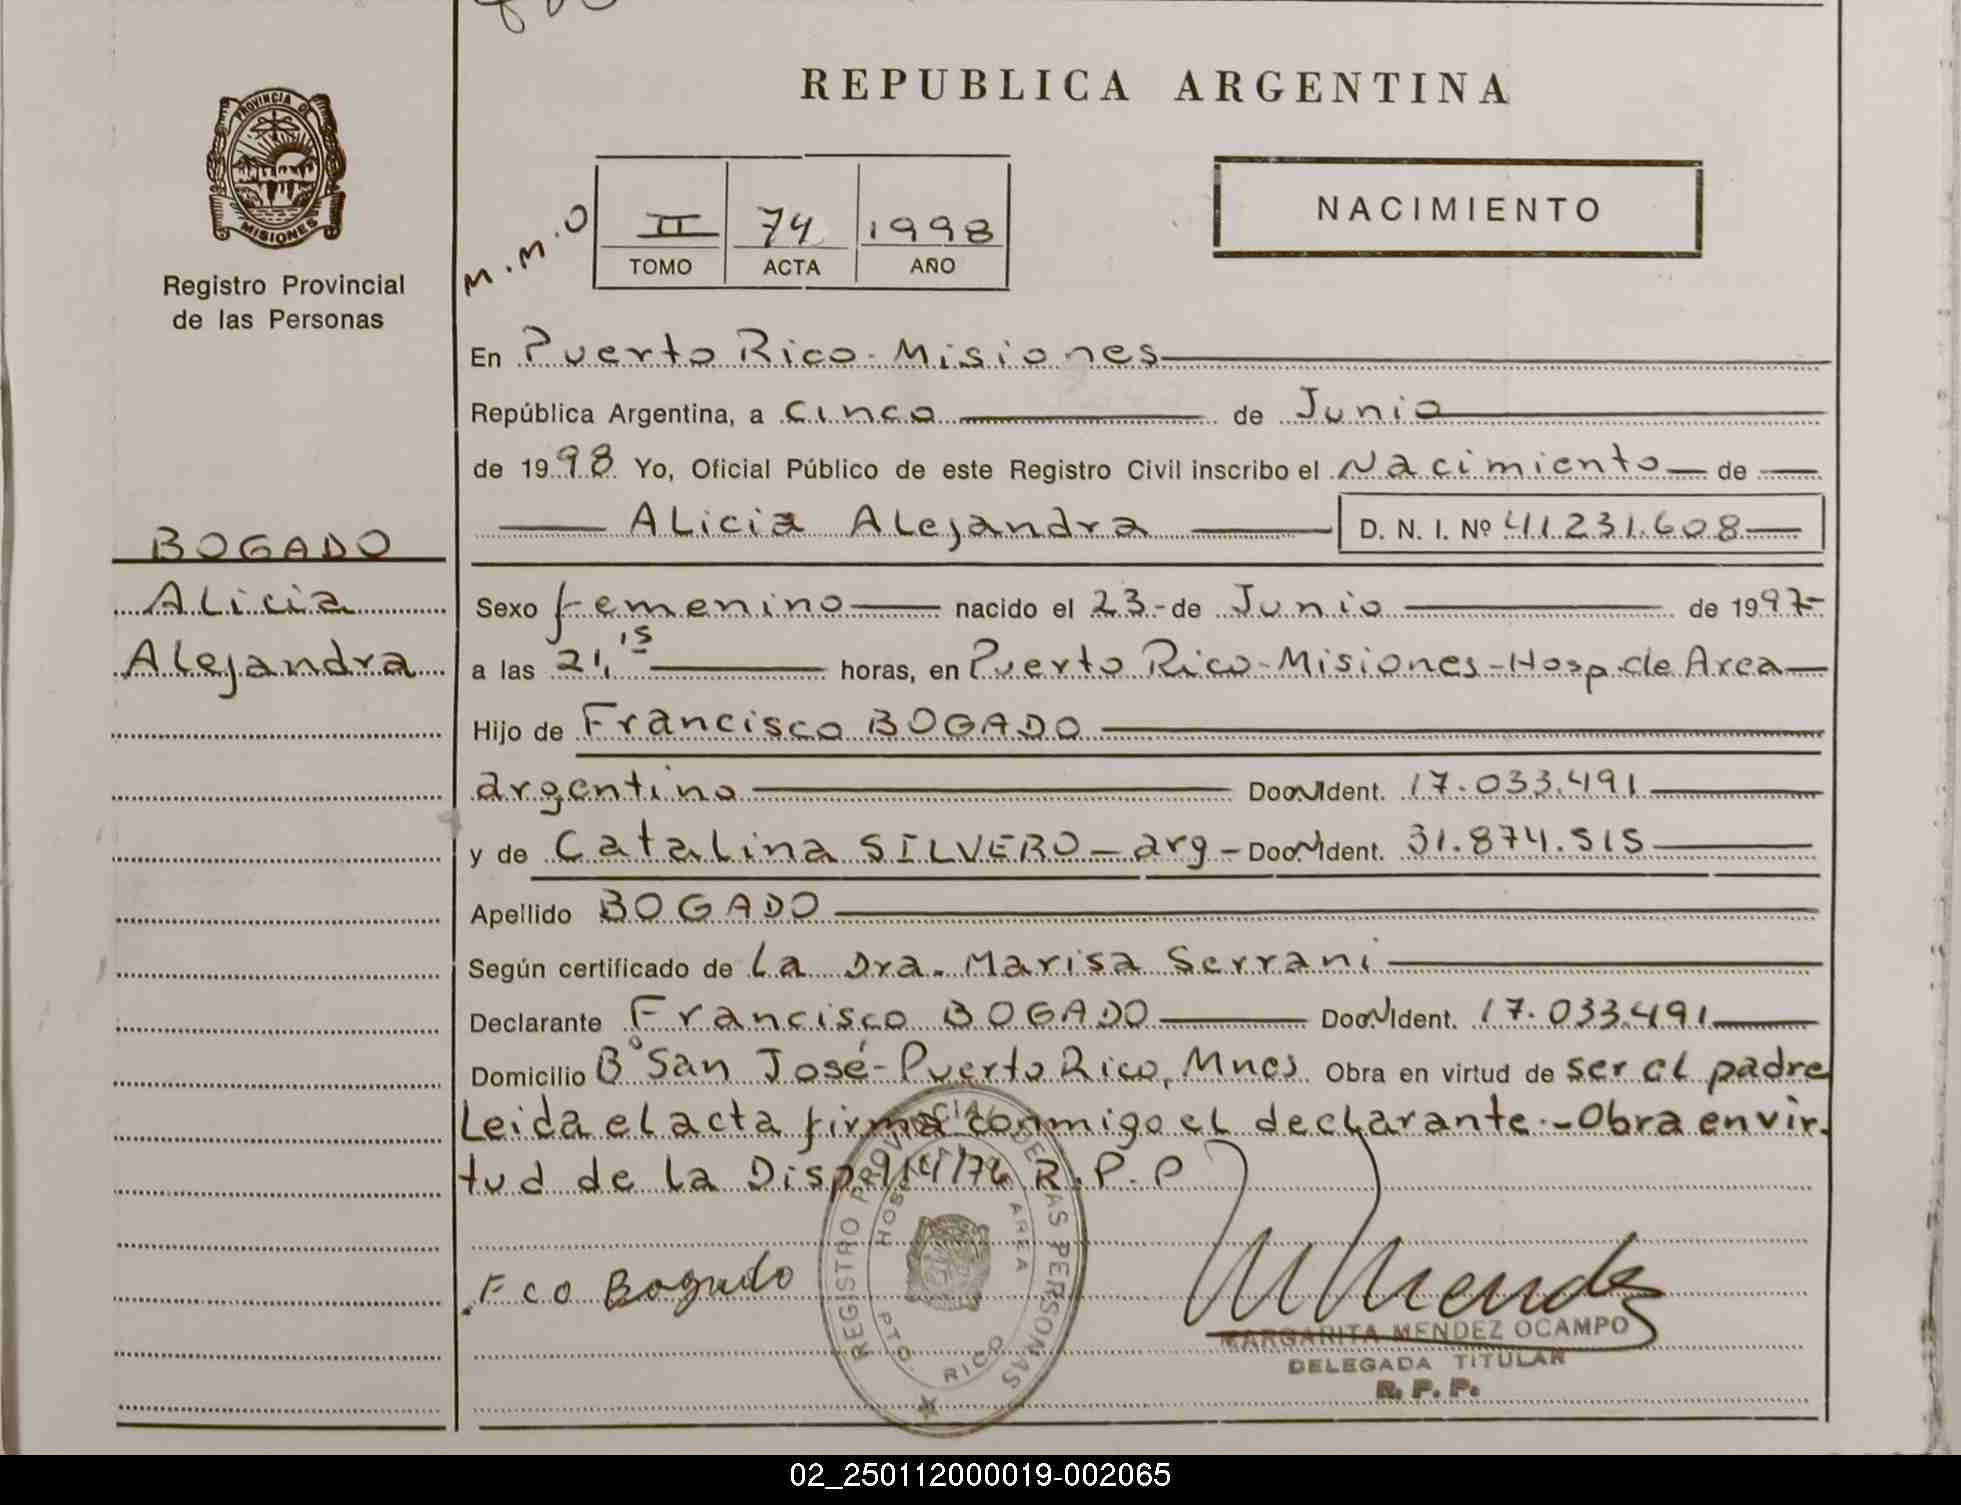 REPUBLICA ARGENTINA
PROVINCIA DE
MISIONES
Registro Provincial
de las Personas
M.M.O
II 74 1998
TOMO ACTA AÑO
NACIMIENTO
En Puerto Rico - Misiones
República Argentina, a cinco de Junio
de 1998 Yo, Oficial Público de este Registro Civil inscribo el Nacimiento de
Alicia Alejandra D. N. I. Nº 41.231.608
BOGADO
Alicia
Alejandra
Sexo femenino nacido el 23 - de Junio de 1997-
a las 21,15 horas, en Puerto Rico - Misiones - Hosp. de Area
Hijo de Francisco BOGADO
argentino Doc. Ident. 17.033.491
y de Catalina SILVERO - arg - Doc. Ident. 31.874.515
Apellido BOGADO
Según certificado de La Dra. Marisa Serrani
Declarante Francisco BOGADO Doc. Ident. 17.033.491
Domicilio Bº San José - Puerto Rico, Mnes. Obra en virtud de ser el padre
Leida el acta firma conmigo el declarante.- Obra en vir.
tud de la Disp. R.P.P
Fco Bogado
REGISTRO PROVINCIAL DE LAS PERSONAS
AREA
PTO. RICO
M Mendez
MARGARITA MENDEZ OCAMPO
DELEGADA TITULAR
R. P. P.
02_250112000019-002065